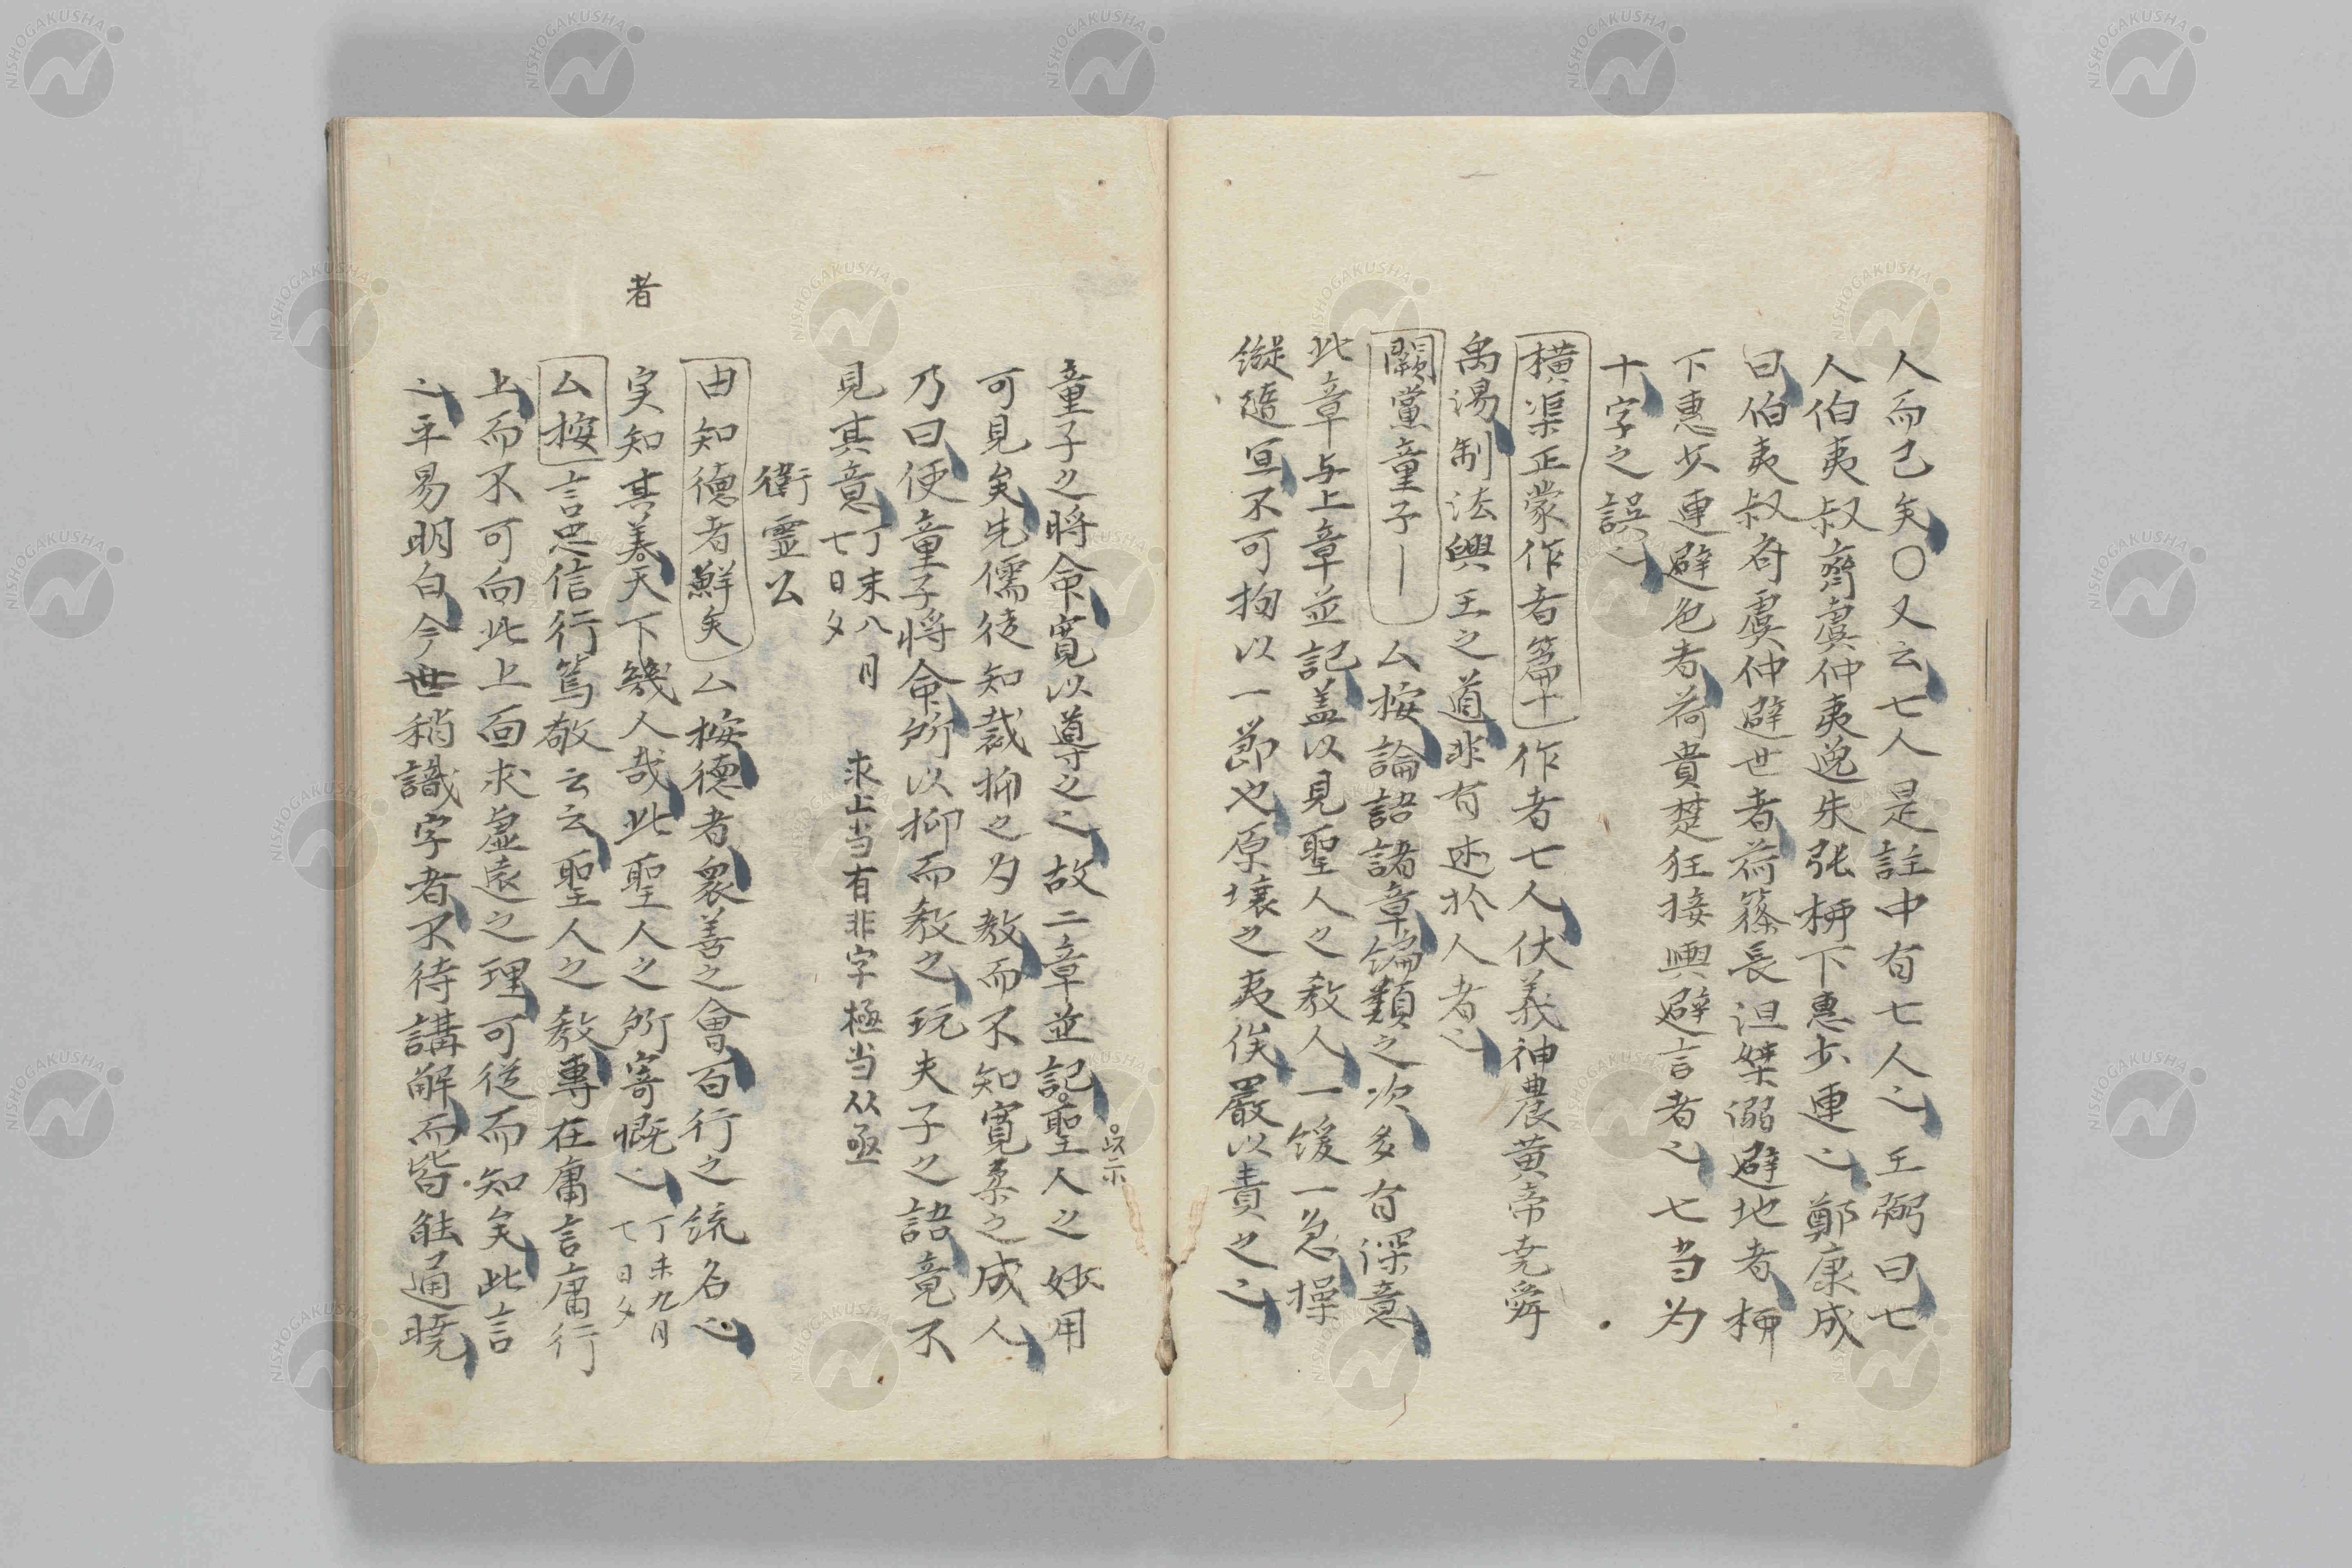 人而已矣〇又云七人是註中有七人也王弼曰七
人伯夷叔齊虞仲夷逸朱张桺下惠少連也鄭康成
曰伯夷叔齐虞仲避世者荷篠長沮桀溺避地者桺
下惠少連避色者荷蕢楚狂接輿避言者也七当为
十字之誤也
橫渠正蒙作者篇十作者七人伏義神農黄帝尭舜
禹湯制法興王之道非有述於人者也
闕黨童子｜ムム按論語諸章编類之次多有深意
此章与上章並記盖以見聖人之教人一缓一急操
縦随宜不可拘以一節也原壌之夷俟嚴以責之也
童子之將命寛以導之也故二章並記聖人之妙用
以示
可見矣先儒徒知裁抑之为教而不知寛柔之成人
乃曰使童子将命所以抑而教之玩夫子之語竟不
見其意丁未八月
七日夕
求上当有非字極当从亟
衛霊公
由知德者鮮矣ム按德者衆善之會百行之統名也
者
実知其美天下幾人哉此聖人之所寄慨也丁未九月
七日夕
ム按言忠信行篤敬云云聖人之教專在庸言庸行
上而不可向此上面求虚遠之理可従而知矣此言
也平易明白今世稍識字者不待講解而皆能通曉
NISHOGAKUSHA